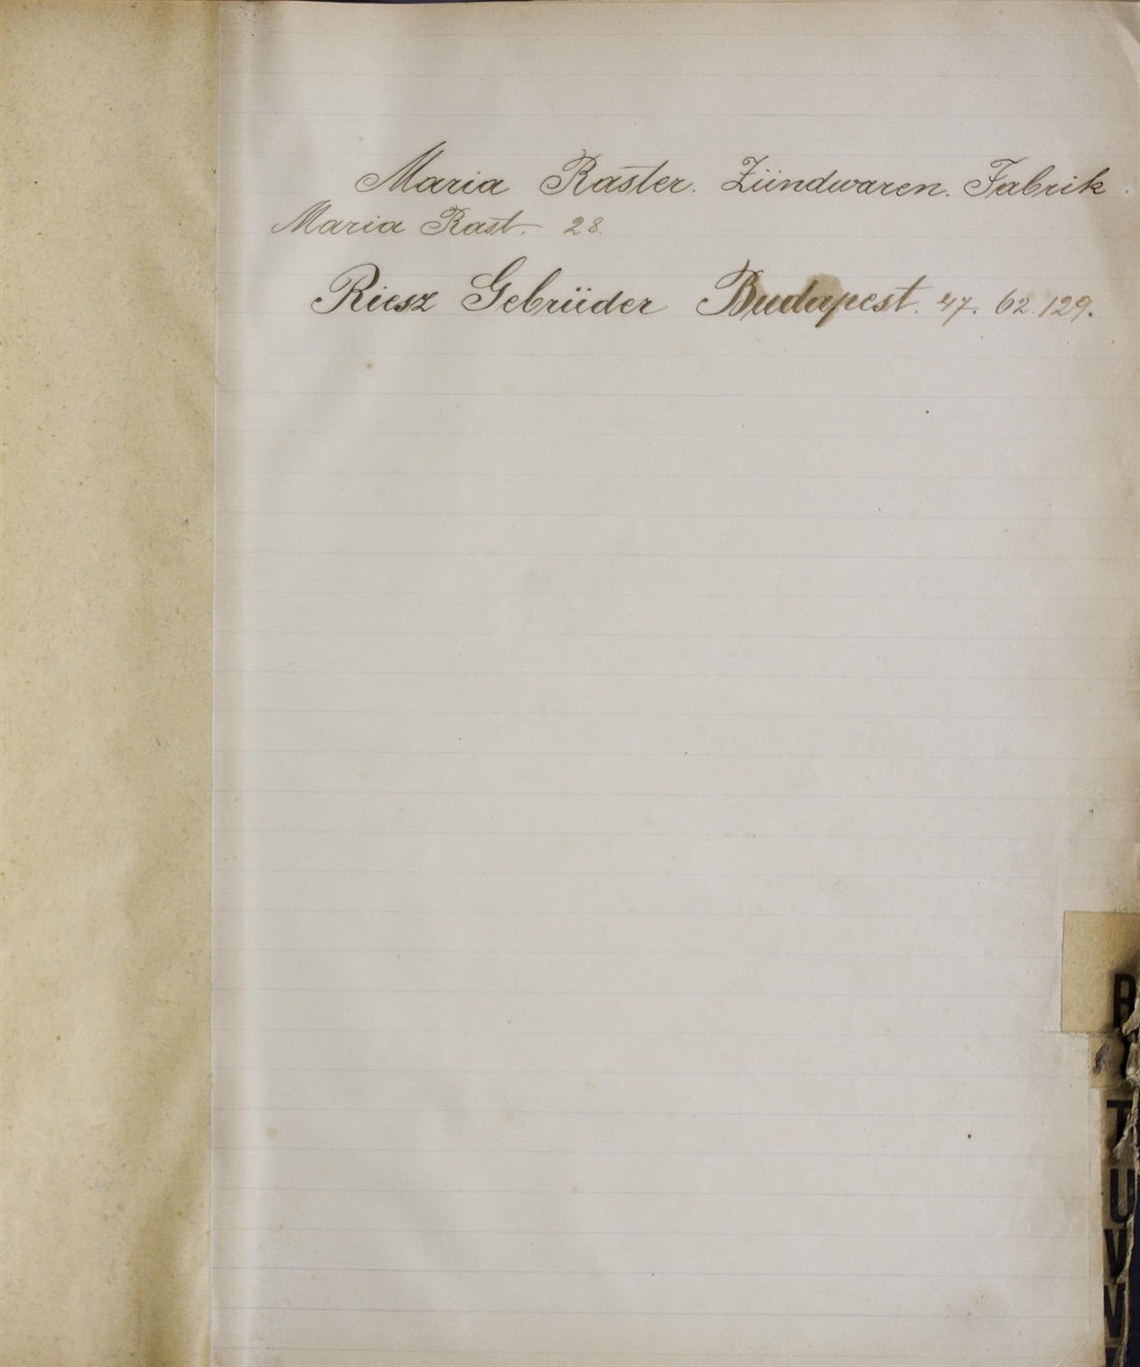 Maria Raster. Zündwaren. Fabrik.
Maria Rast. 28.
Riesz Gebrüder Budapest. 47. 62. 129.
R
T
U
V